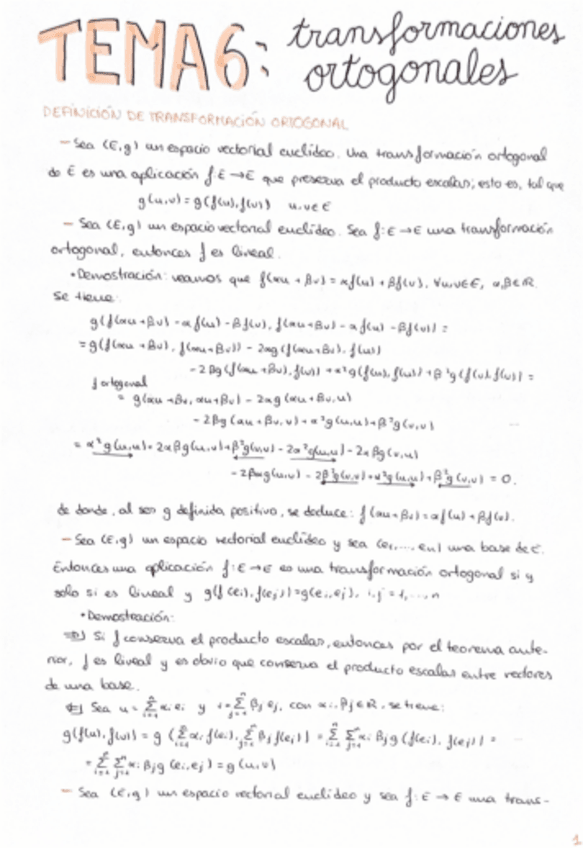 TEMA 6: transformaciones
ortogonales
DEFINICIÓN DE TRANSFORMACIÓN ORTOGONAL
- Sea (E,g) un espacio vectorial euclídeo. Una transformación ortogonal
de E es una aplicación f:E→E que preserva el producto escalar; esto es, tal que
g(u,v)=g(f(u),f(v)) u,v∈E
- Sea (E,g) un espacio vectorial euclídeo. Sea f:E→E una transformación
ortogonal, entonces f es lineal.
•Demostración: veamos que f(αu+βv)=αf(u)+βf(v), ∀u,v∈E, α,β∈ℝ.
Se tiene:
g(f(αu+βv)-αf(u)-βf(v), f(αu+βv)-αf(u)-βf(v))=
=g(f(αu+βv), f(αu+βv))-2αg(f(αu+βv), f(u))
-2βg(f(αu+βv), f(v))+α²g(f(u), f(u))+β²g(f(v), f(v))=
f ortogonal
= g(αu+βv, αu+βv)-2αg(αu+βv, u)
-2βg(αu+βv, v)+α²g(u,u)+β²g(v,v)
= α²g(u,u)+2αβg(u,v)+β²g(v,v)-2α²g(u,u)-2αβg(v,u)
-2βαg(u,v)-2β²g(v,v)+α²g(u,u)+β²g(v,v)=0.
de donde, al ser g definida positiva, se deduce: f(αu+βv)=αf(u)+βf(v).
- Sea (E,g) un espacio vectorial euclídeo y sea (e₁,...,en) una base de E.
Entonces una aplicación f:E→E es una transformación ortogonal si y
solo si es lineal y g(f(ei), f(ej))=g(ei,ej), i,j=1,...,n
•Demostración:
⇒) Si f conserva el producto escalar, entonces por el teorema ante-
rior, f es lineal y es obvio que conserva el producto escalar entre vectores
de una base.
⇐) Sea u=∑ⁿᵢ₌₁ αi ei y v=∑ⁿⱼ₌₁ βj ej, con αi, βj∈ℝ, se tiene:
g(f(u), f(v)) = g(∑ⁿᵢ₌₁ αi f(ei), ∑ⁿⱼ₌₁ βj f(ej)) = ∑ⁿᵢ₌₁ ∑ⁿⱼ₌₁ αi βj g(f(ei), f(ej))=
= ∑ⁿᵢ₌₁ ∑ⁿⱼ₌₁ αi βj g(ei,ej) = g(u,v)
- Sea (E,g) un espacio vectorial euclídeo y sea f:E→E una trans-
1